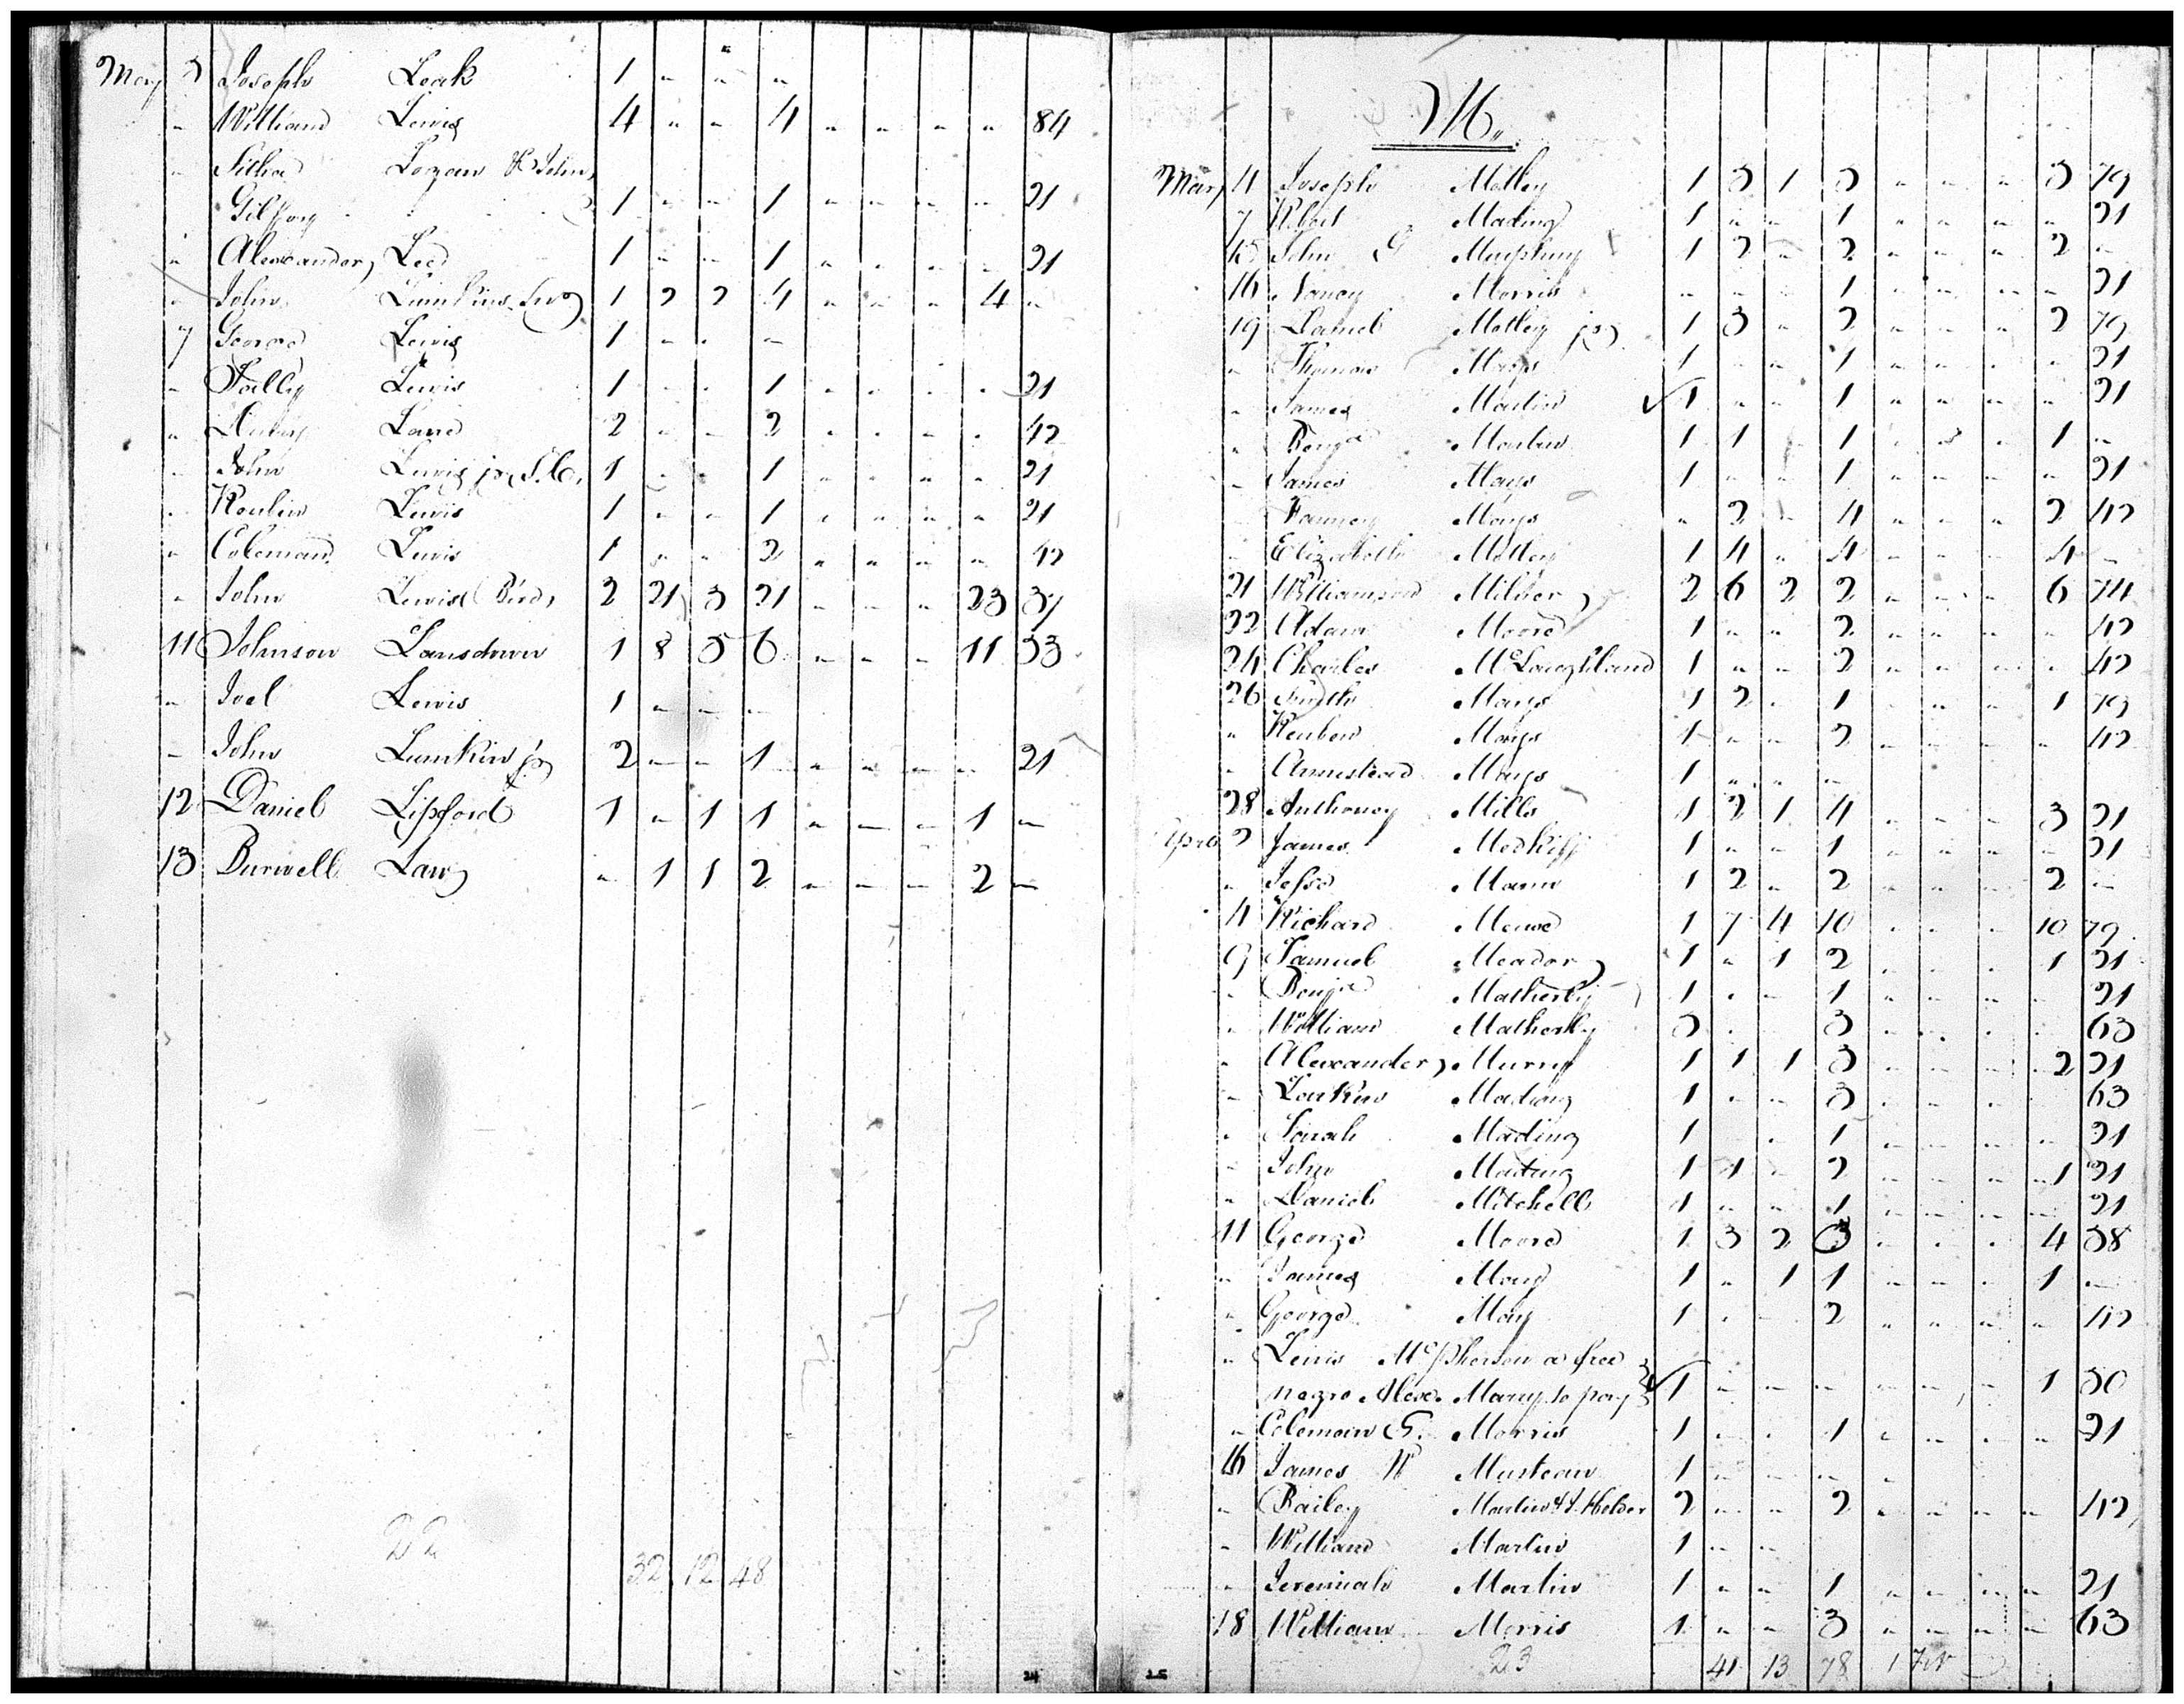 May 3 Joseph Leak 1 " " "
" William Lewis 4 " " 4 " " " " 84
" Logan & John
1 " " 1 " " " " 21
" Alexander Lee 1 " " 1 " " " " 21
" John Lumkins 1 2 2 4 " " " 4 "
7 George Lewis 1 " " "
" Lewis 1 " " 1 " " " " 21
" Lane 2 " " 2 " " " " 42
" John Lewis jr S.C. 1 " " 1 " " " " 21
" Lewis 1 " " 1 " " " " 21
" Coleman Lewis 1 " " 2 " " " " 42
" John Lewis (Bird) 2 21 3 21 " " " 23 37
11 Johnson Lansdown 1 8 5 6 " " " 11 53
" Joel Lewis 1 " " "
" John Lumkin jr 2 " " 1 " " " " 21
12 Daniel Lipford 1 " 1 1 " " " 1 "
13 Burwell Law " 1 1 2 " " " 2 "
22 32 12 48
24
M.
4 Joseph Motley 1 3 1 3 " " " 3 79
7 Mading 1 " " 1 " " " " 21
15 John G 1 2 " 2 " " " 2 "
16 Nancy Morris " " " 1 " " " " 21
19 Daniel Motley jr 1 3 " 2 " " " 2 79
" Thomas Mays 1 " " 1 " " " " 21
" James Martin 1 " " 1 " " " " 21
" Benja Martin 1 1 " 1 " " " 1 "
" James Mays 1 " " 1 " " " " 21
" Fanney Mays " 2 " 4 " " " 2 42
" Elizabeth Motley 1 4 " 4 " " " 4 "
21 Williamson Milner 2 6 2 2 " " " 6 74
22 Adam Moore 1 " " 2 " " " " 42
24 Charles McLaughland 1 " " 2 " " " " 42
26 Mays 1 2 " 1 " " " 1 79
" Reuben Mays 1 " " 2 " " " " 42
" Armistead Mays 1 " " "
28 Anthoney Mills 1 2 1 4 3 21
April 2 James Medkiff 1 " " 1 " " " " 21
" Jesse Mann 1 2 " 2 " " " 2 "
4 Richard 1 7 4 10 " " " 10 79
9 Samuel Meador 1 " 1 2 " " " 1 21
" Benja Matherly 1 " " 1 " " " " 21
" William Matherly 3 " " 3 " " " " 63
" Alexander Murry 1 1 1 3 " " " 2 21
" Larkin Mading 1 " " 3 " " " " 63
" Sarah Mading 1 " " 1 " " " " 21
" John Mading 1 1 " 2 " " " 1 21
" Daniel Mitchell 1 " " 1 " " " " 21
11 George Moore 1 3 2 3 " " " 4 38
" James May 1 " 1 1 " " " 1 "
" George May 1 " " 2 " " " " 42
" Lewis McPherson a free
negro Alexr. to pay 1 " " " " " " 1 50
" Coleman G. Morris 1 " " 1 " " " " 21
16 James W Mustean 1 " " " "
" Bailey Martin & J. Holder 2 " " 2 " " " " 42
" William Martin 1 " "
" Jeremiah Martin 1 " " 1 " " " " 21
18 William Morris 1 " " 3 " " " " 63
23 41 13 78 1
25